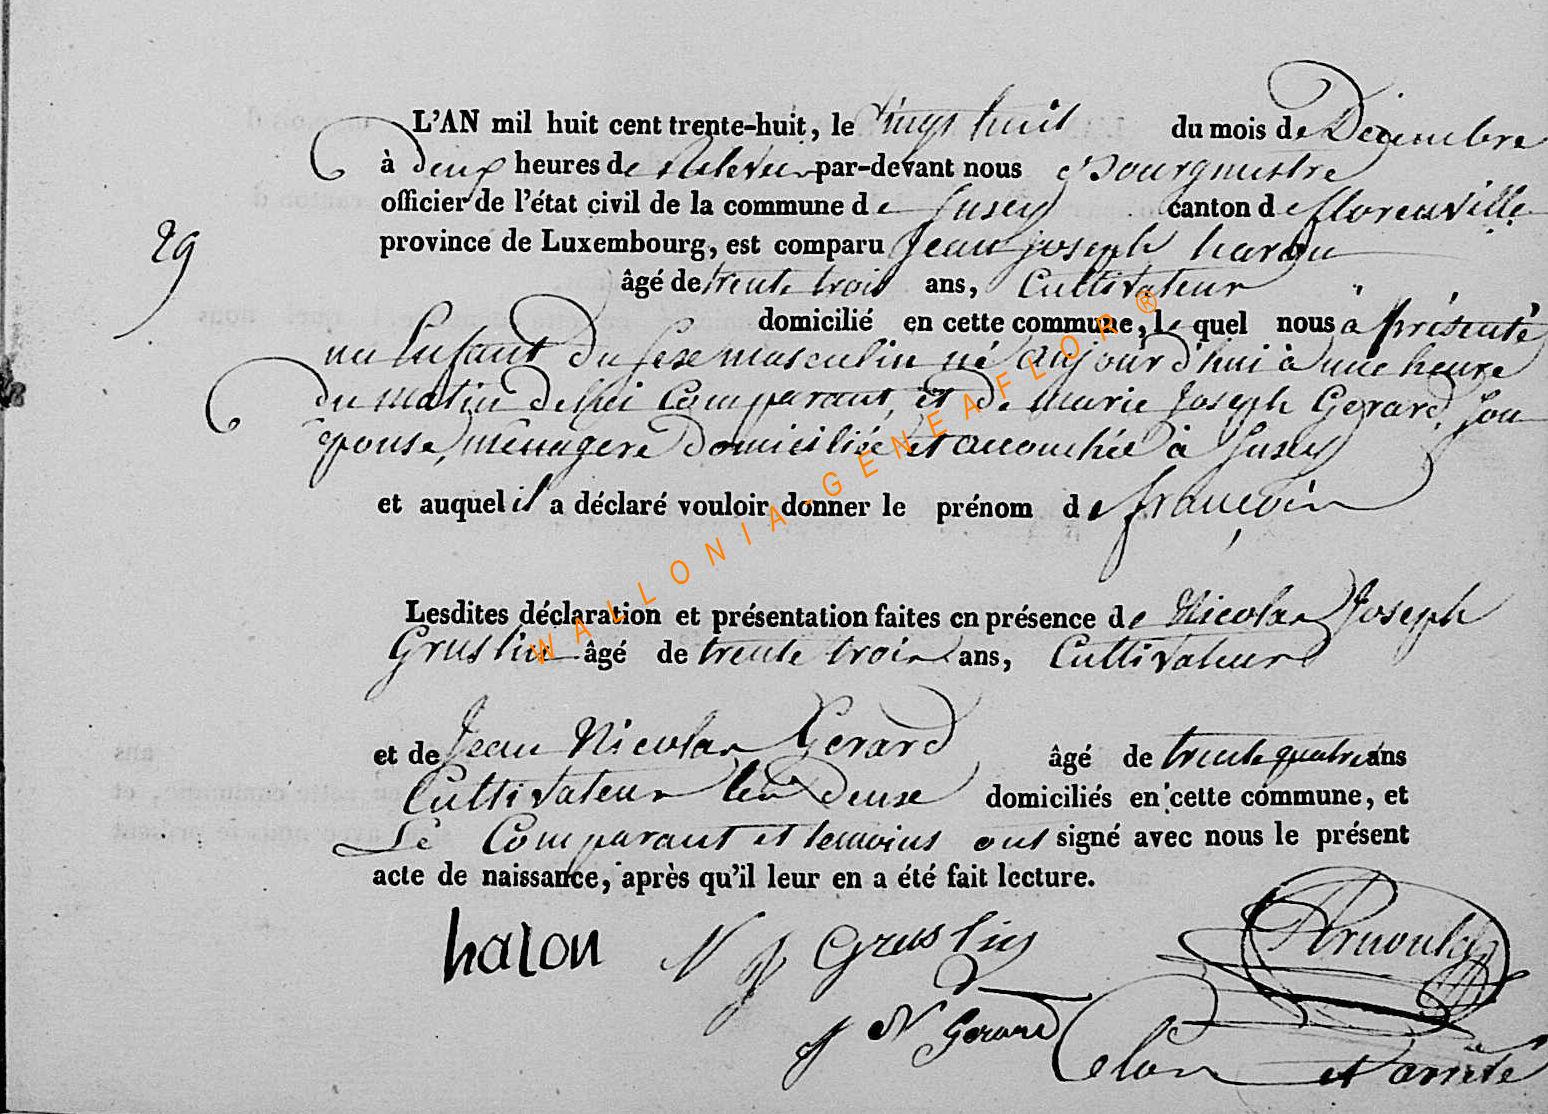 L'AN mil huit cent trente-huit, le vingt huit du mois de Décembre
à deux heures de Relevée par-devant nous Bourgmestre
officier de l'état civil de la commune de Suxy canton de florenville
province de Luxembourg, est comparu Jean joseph
29
âgé de trente trois ans, Cultivateur
domicilié en cette commune, le quel nous à présenté
un Enfant du sexe masculin né aujourd'hui à une heure
du matin de lui Comparant, et de marie Joseph Gerard, son
épouse, ménagere domiciliée et accouchée à Suxy
et auquel il a déclaré vouloir donner le prénom de françois
Lesdites déclaration et présentation faites en présence de Nicolas Joseph
Gruslin âgé de trente trois ans, Cultivateur
et de Jean Nicolas Gerard âgé de trente quatre ans
Cultivateur tous deux domiciliés en cette commune, et
Le Comparant et temoins ont signé avec nous le présent
acte de naissance, après qu'il leur en a été fait lecture.
halon N J Gruslin Arnould
J N Gerard Clos et arrêté
WALLONIA-GENEAFLOR®